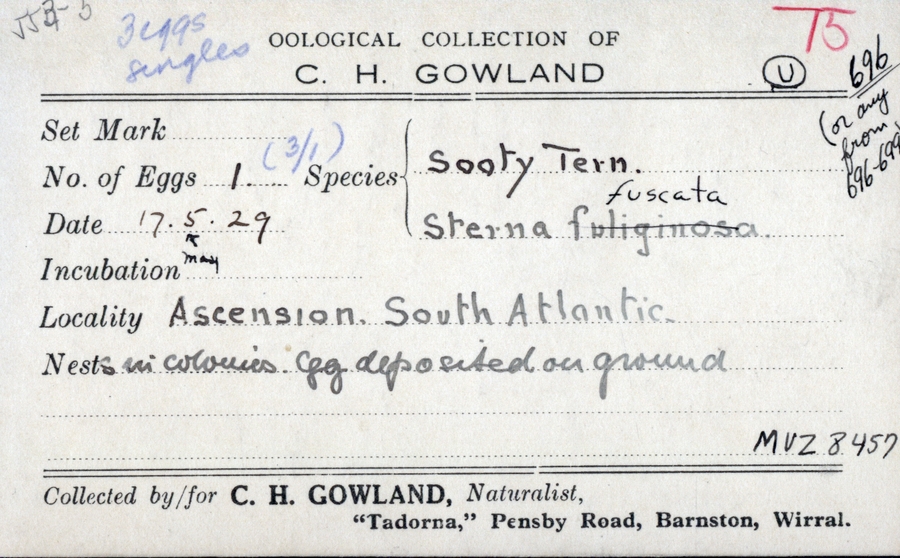 3 eggs
singles
OOLOGICAL COLLECTION OF
C. H. GOWLAND
75
U
696
(or any
from
696-699
Set Mark
No. of Eggs 1. (3/1) Species
Sooty Tern.
fuscata
Date 17.5.29
Sterna fuliginosa.
May
Incubation
Locality Ascension. South Atlantic.
Nests in colonies. Egg deposited on ground
MVZ 8457
Collected by/for C. H. GOWLAND, Naturalist,
“Tadorna,” Pensby Road, Barnston, Wirral.